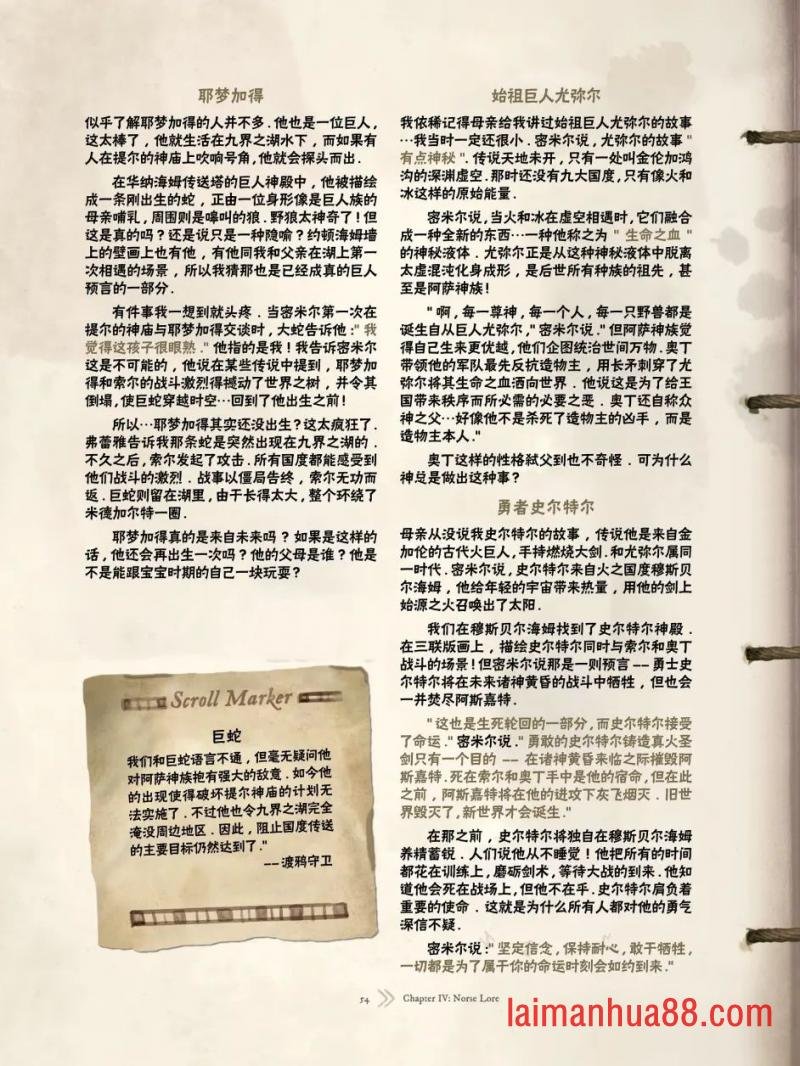 耶梦加得
似乎了解耶梦加得的人并不多．他也是一位巨人，
这太棒了，他就生活在九界之湖水下，而如果有
人在提尔的神庙上吹响号角，他就会探头而出．
在华纳海姆传送塔的巨人神殿中，他被描绘
成一条刚出生的蛇，正由一位身形像是巨人族的
母亲哺乳，周围则是嗥叫的狼．野狼太神奇了！但
这是真的吗？还是说只是一种隐喻？约顿海姆墙
上的壁画上也有他，有他同我和父亲在湖上第一
次相遇的场景，所以我猜那是已经成真的巨人
预言的一部分．
有件事我一想到就头疼．当密米尔第一次在
提尔的神庙与耶梦加得交谈时，大蛇告诉他："我
觉得这孩子很眼熟．"他指的是我！我告诉密米尔
这是不可能的，他说在某些传说中提到，耶梦加
得和索尔的战斗激烈得撼动了世界之树，并令其
倒塌，使巨蛇穿越时空…回到了他出生之前！
所以…耶梦加得其实还没出生？这太疯狂了．
弗蕾雅告诉我那条蛇是突然出现在九界之湖的．
不久之后，索尔发起了攻击．所有国度都能感受到
他们战斗的激烈．战事以僵局告终，索尔无功而
返．巨蛇则留在湖里，由于长得太大，整个环绕了
米德加尔特一圈．
耶梦加得真的是来自未来吗？如果是这样的
话，他还会再出生一次吗？他的父母是谁？他是
不是能跟宝宝时期的自己一块玩耍？
Scroll Marker
巨蛇
我们和巨蛇语言不通，但毫无疑问他
对阿萨神族抱有强大的敌意．如今他
的出现使得破坏提尔神庙的计划无
法实施了．不过他也令九界之湖完全
淹没周边地区．因此，阻止国度传送
的主要目标仍然达到了．"
——渡鸦守卫
始祖巨人尤弥尔
我依稀记得母亲给我讲过始祖巨人尤弥尔的故事
…我当时一定还很小．密米尔说，尤弥尔的故事"
有点神秘"．传说天地未开，只有一处叫金伦加鸿
沟的深渊虚空．那时还没有九大国度，只有像火和
冰这样的原始能量．
密米尔说，当火和冰在虚空相遇时，它们融合
成一种全新的东西…一种他称之为"生命之血"
的神秘液体．尤弥尔正是从这种神秘液体中脱离
太虚混沌化身成形，是后世所有种族的祖先，甚
至是阿萨神族！
"啊，每一尊神，每一个人，每一只野兽都是
诞生自从巨人尤弥尔，"密米尔说．"但阿萨神族觉
得自己生来更优越，他们企图统治世间万物．奥丁
带领他的军队最先反抗造物主，用长矛刺穿了尤
弥尔将其生命之血洒向世界．他说这是为了给王
国带来秩序而所必需的必要之恶．奥丁还自称众
神之父…好像他不是杀死了造物主的凶手，而是
造物主本人．"
奥丁这样的性格弑父到也不奇怪．可为什么
神总是做出这种事？
勇者史尔特尔
母亲从没说我史尔特尔的故事，传说他是来自金
加伦的古代火巨人，手持燃烧大剑．和尤弥尔属同
一时代．密米尔说，史尔特尔来自火之国度穆斯贝
尔海姆，他给年轻的宇宙带来热量，用他的剑上
始源之火召唤出了太阳．
我们在穆斯贝尔海姆找到了史尔特尔神殿．
在三联版画上，描绘史尔特尔同时与索尔和奥丁
战斗的场景！但密米尔说那是一则预言——勇士史
尔特尔将在未来诸神黄昏的战斗中牺牲，但也会
一并焚尽阿斯嘉特．
"这也是生死轮回的一部分，而史尔特尔接受
了命运．"密米尔说．"勇敢的史尔特尔铸造真火圣
剑只有一个目的——在诸神黄昏来临之际摧毁阿
斯嘉特．死在索尔和奥丁手中是他的宿命，但在此
之前，阿斯嘉特将在他的进攻下灰飞烟灭．旧世
界毁灭了，新世界才会诞生．"
在那之前，史尔特尔将独自在穆斯贝尔海姆
养精蓄锐．人们说他从不睡觉！他把所有的时间
都花在训练上，磨砺剑术，等待大战的到来．他知
道他会死在战场上，但他不在乎．史尔特尔肩负着
重要的使命．这就是为什么所有人都对他的勇气
深信不疑．
密米尔说："坚定信念，保持耐心，敢于牺牲，
一切都是为了属于你的命运时刻会如约到来．"
54 Chapter IV: Norse Lore
laimanhua88.com